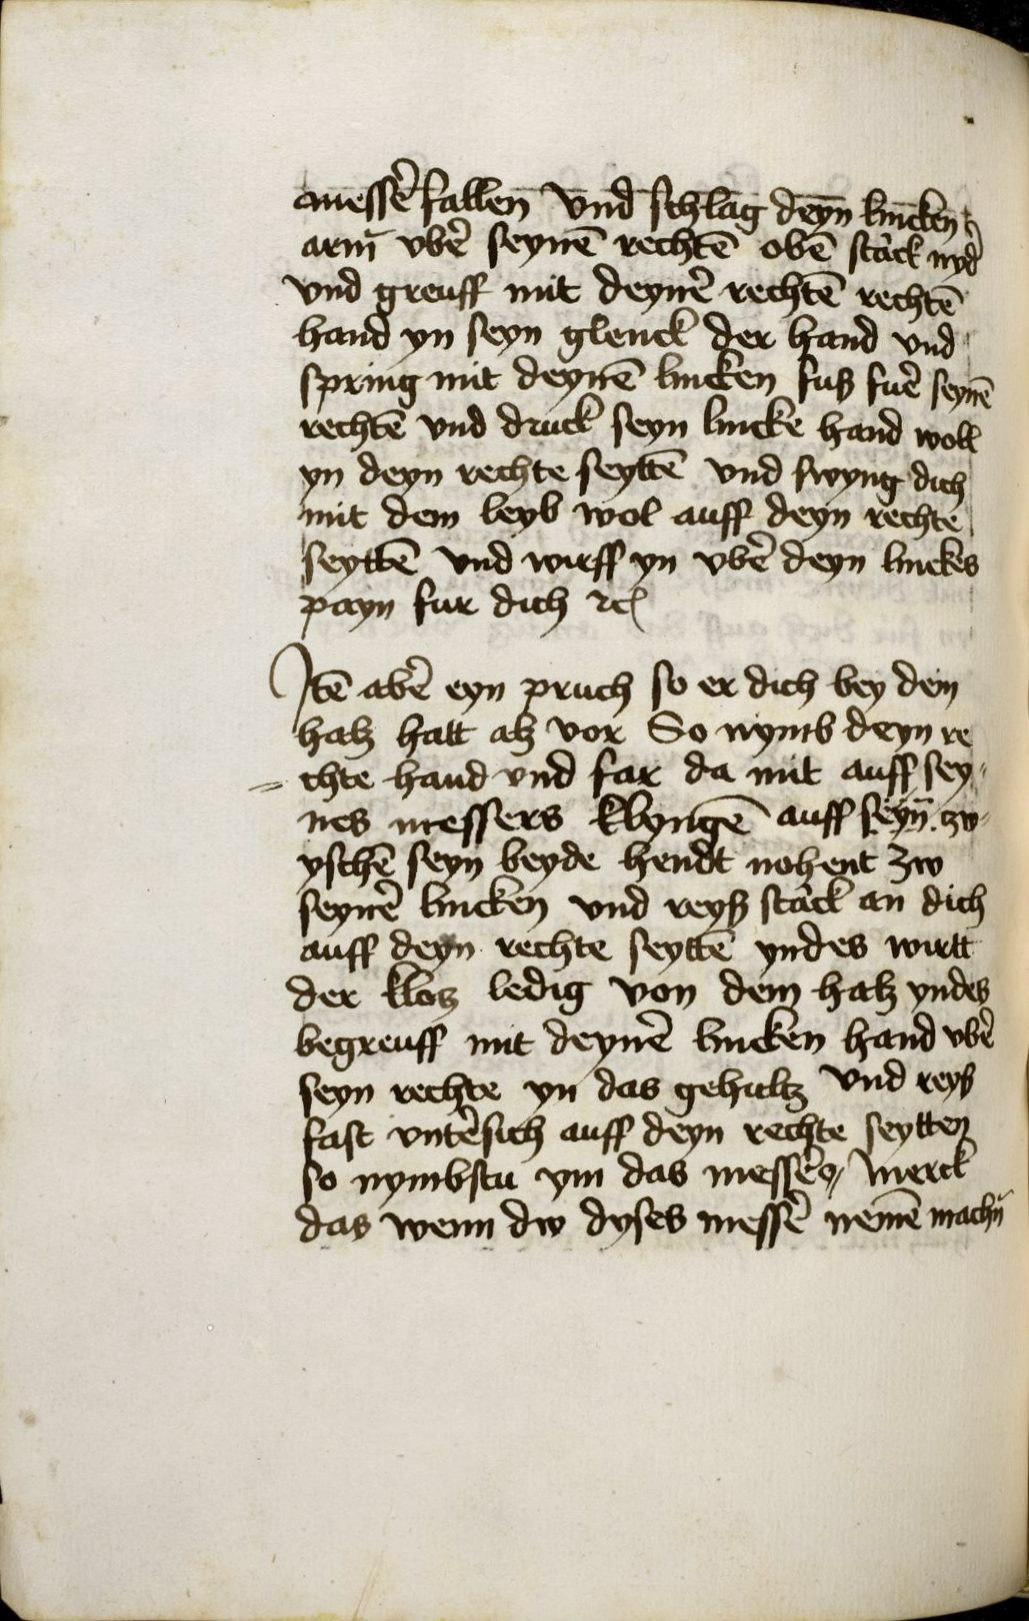 messer̄ fallen vnd schlag deyn lincken
arm̄ vber̄ seynē rechtē obē starck nyd̄
vnd greuff mit deyner̄ rechtē rechtē
hand yn seyn glenck der hand vnd
spring mit deynē lincken fuß fur̄ seynē
rechtē vnd druck seyn lincke hand woll
yn deyn rechte seyttē vnd swyng dich
mit dem leyb wol auff deyn rechte
seyttē vnd wirff yn vber̄ deyn linckes
payn fur dich ꝛc
Itē aber̄ eyn pruch so er dich bey dem
halß hatt alß vor So nymb deyn re
= chte hand vnd far da mit auff sey-
nes messers klyngē auff seyn̄ zw-
yschē seyn beyde hendt nohent zw
seyner̄ lincken vnd reyß starck an dich
auff deyn rechte seyttē yndes wirtt
der kloß ledig von dem halß yndes
begreuff mit deyner̄ lincken hand vber̄
seyn rechte yn das gehultz vnd reyß
fast vnter̄sich auff deyn rechte seytten
so nymbstu ym das messer̄ // merck
das wenn dw dyses messer̄ nemē machn̄